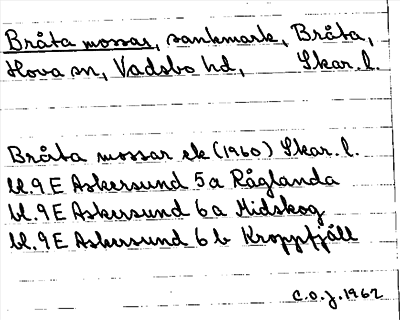 Bråta mossar, sankmark, Bråta,
Hova sn, Vadsbo hd, Skar. l.
Bråta mossar ek (1960) Skar. l.
bl. 9E Askersund 5a Råglanda
bl. 9E Askersund 6a Midskog
bl. 9E Askersund 6b Kroppfjäll
C.O.J. 1962